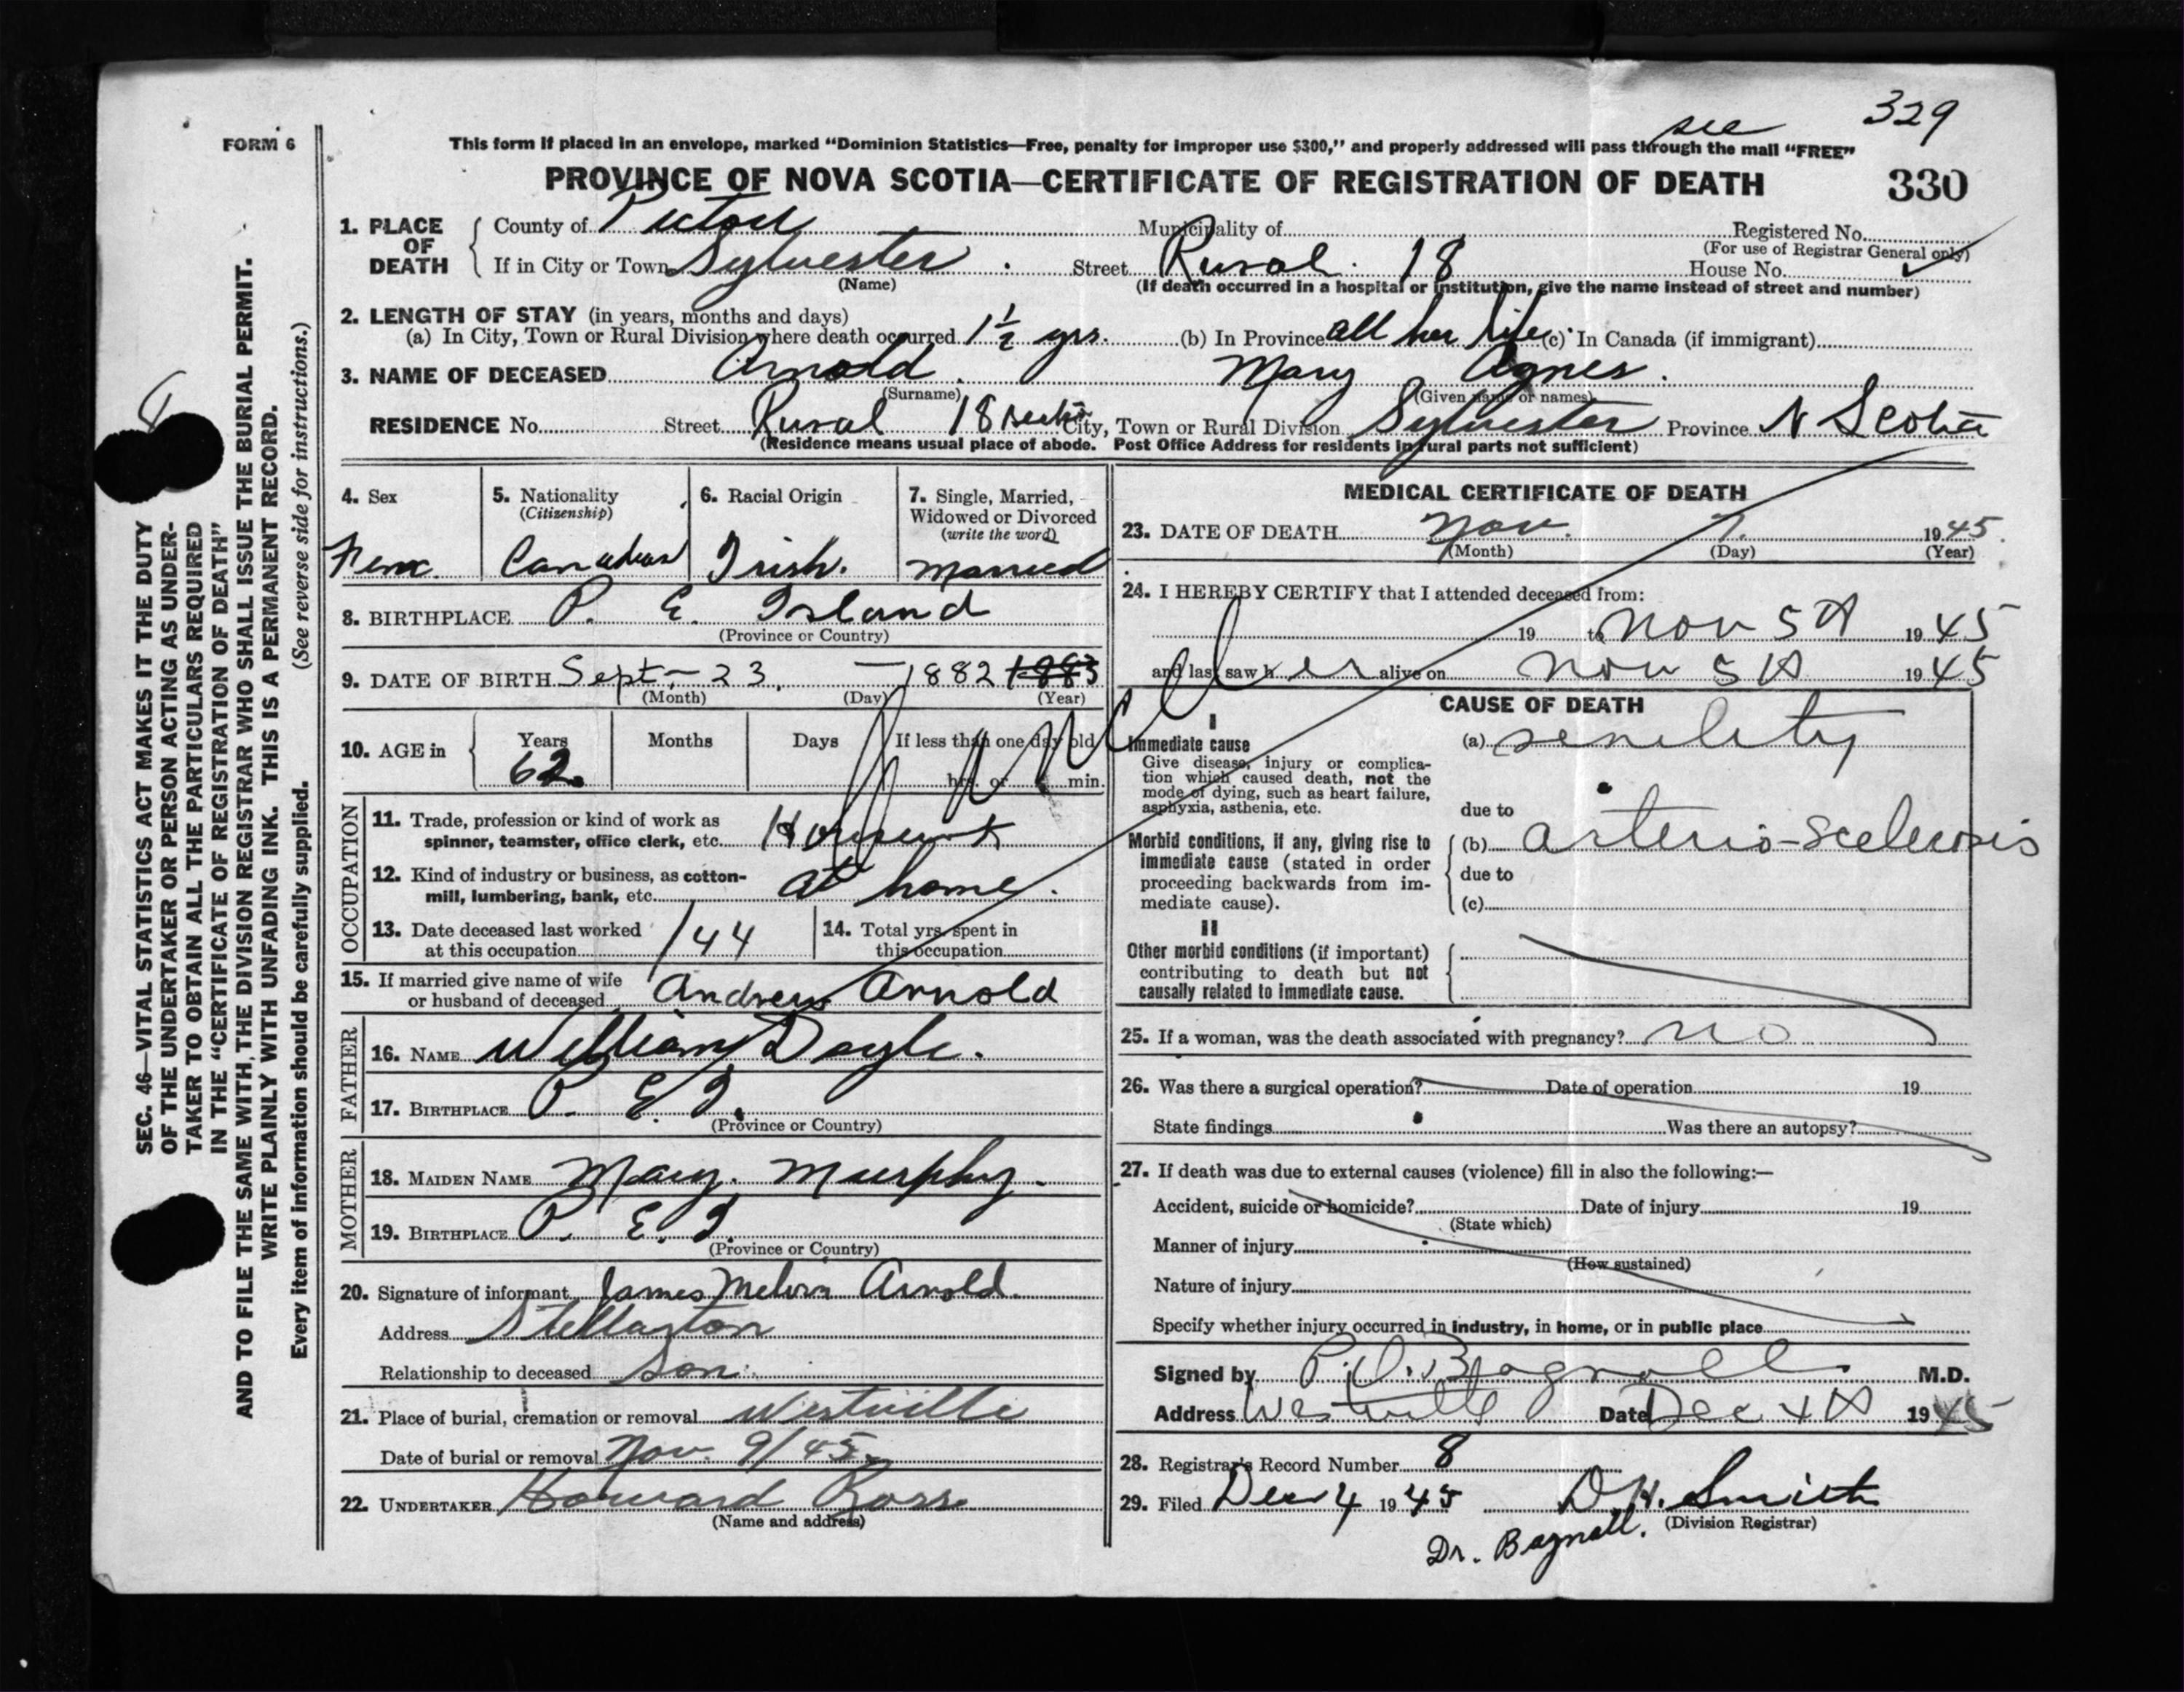 329
see
FORM 6
This form if placed in an envelope, marked “Dominion Statistics—Free, penalty for improper use $300,” and properly addressed will pass through the mail “FREE”
PROVINCE OF NOVA SCOTIA—CERTIFICATE OF REGISTRATION OF DEATH 330
1. PLACE OF DEATH County of Pictou Municipality of Registered No.
(For use of Registrar General only)
If in City or Town Sylvester Street Rural 18 House No.
(Name) (If death occurred in a hospital or institution, give the name instead of street and number)
2. LENGTH OF STAY (in years, months and days)
(a) In City, Town or Rural Division where death occurred 1½ yrs. (b) In Province all her life (c) In Canada (if immigrant)
3. NAME OF DECEASED Arnold Mary Agnes.
(Surname) (Given name or names)
RESIDENCE No. Street Rural 18 City, Town or Rural Division Sylvester Province N Scotia
(Residence means usual place of abode. Post Office Address for residents in rural parts not sufficient)
4. Sex 5. Nationality (Citizenship) 6. Racial Origin 7. Single, Married, Widowed or Divorced (write the word)
Fem. Canadian Irish. married
8. BIRTHPLACE P. E. Island
(Province or Country)
9. DATE OF BIRTH Sept - 23, - 1882 1883
(Month) (Day) (Year)
10. AGE in Years Months Days If less than one day old
62 hrs. or min.
OCCUPATION
11. Trade, profession or kind of work as
spinner, teamster, office clerk, etc. Housework
12. Kind of industry or business, as cotton-
mill, lumbering, bank, etc. at home.
13. Date deceased last worked
at this occupation /44
14. Total yrs. spent in
this occupation
15. If married give name of wife
or husband of deceased Andrew Arnold
FATHER
16. NAME William Doyle.
17. BIRTHPLACE P. E. I.
(Province or Country)
MOTHER
18. MAIDEN NAME Mary. Murphy.
19. BIRTHPLACE P. E. I.
(Province or Country)
20. Signature of informant James Melvin Arnold.
Address Stellarton
Relationship to deceased Son.
21. Place of burial, cremation or removal Westville
Date of burial or removal Nov. 9/45
22. UNDERTAKER Howard Ross
(Name and address)
MEDICAL CERTIFICATE OF DEATH
23. DATE OF DEATH Nov. 7. 1945.
(Month) (Day) (Year)
24. I HEREBY CERTIFY that I attended deceased from:
19 to Nov 5th 1945
and last saw her alive on Nov 5th 1945
CAUSE OF DEATH
I
Immediate cause
Give disease, injury or complica-
tion which caused death, not the
mode of dying, such as heart failure,
asphyxia, asthenia, etc.
(a) senility
due to
Morbid conditions, if any, giving rise to
immediate cause (stated in order
proceeding backwards from im-
mediate cause).
(b) arterio-sclerosis
due to
(c)
II
Other morbid conditions (if important)
contributing to death but not
causally related to immediate cause.
25. If a woman, was the death associated with pregnancy? no
26. Was there a surgical operation? Date of operation 19
State findings Was there an autopsy?
27. If death was due to external causes (violence) fill in also the following:—
Accident, suicide or homicide? Date of injury 19
(State which)
Manner of injury
(How sustained)
Nature of injury
Specify whether injury occurred in industry, in home, or in public place
Signed by P.D. Bagnall. M.D.
Address Westville Date Dec 4th 1945
28. Registrar's Record Number 8
29. Filed Dec 4 1945 D.H. Smith
(Division Registrar)
Dr. Bagnall.
SEC. 46—VITAL STATISTICS ACT MAKES IT THE DUTY
OF THE UNDERTAKER OR PERSON ACTING AS UNDER-
TAKER TO OBTAIN ALL THE PARTICULARS REQUIRED
IN THE “CERTIFICATE OF REGISTRATION OF DEATH”
AND TO FILE THE SAME WITH THE DIVISION REGISTRAR WHO SHALL ISSUE THE BURIAL PERMIT.
WRITE PLAINLY WITH UNFADING INK. THIS IS A PERMANENT RECORD.
Every item of information should be carefully supplied. (See reverse side for instructions.)